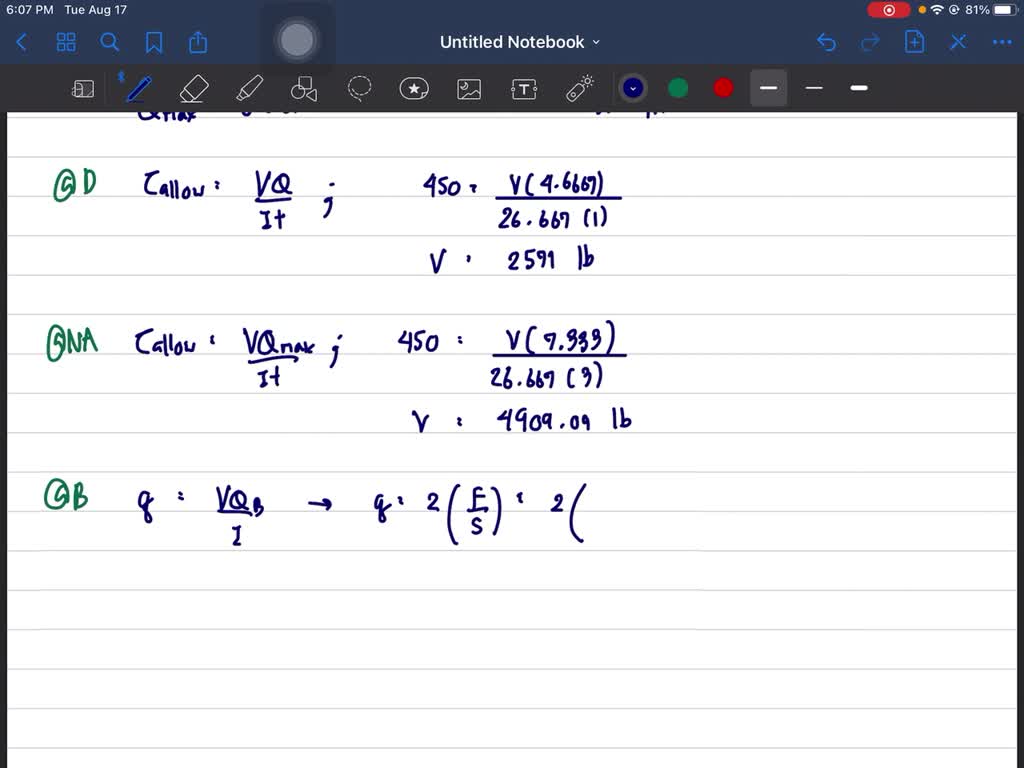 6:07 PM Tue Aug 17
81%
Untitled Notebook
@D τallow = VQ / It ; 450 = V(4.6667) / 26.667 (1)
V = 2571 lb
@NA τallow = VQmax / It ; 450 = V(7.333) / 26.667 (3)
V = 4909.09 lb
@B q = VQB / I → q = 2(F / S) = 2(